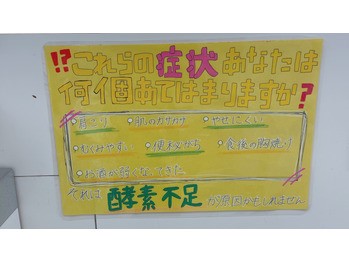 !?これらの症状あなたは
何個あてはまりますか?
・肩こり ・肌のカサカサ ・やせにくい
・むくみやすい ・便秘がち ・食後の胸焼け
・お酒が弱くなってきた
それは酵素不足が原因かもしれません